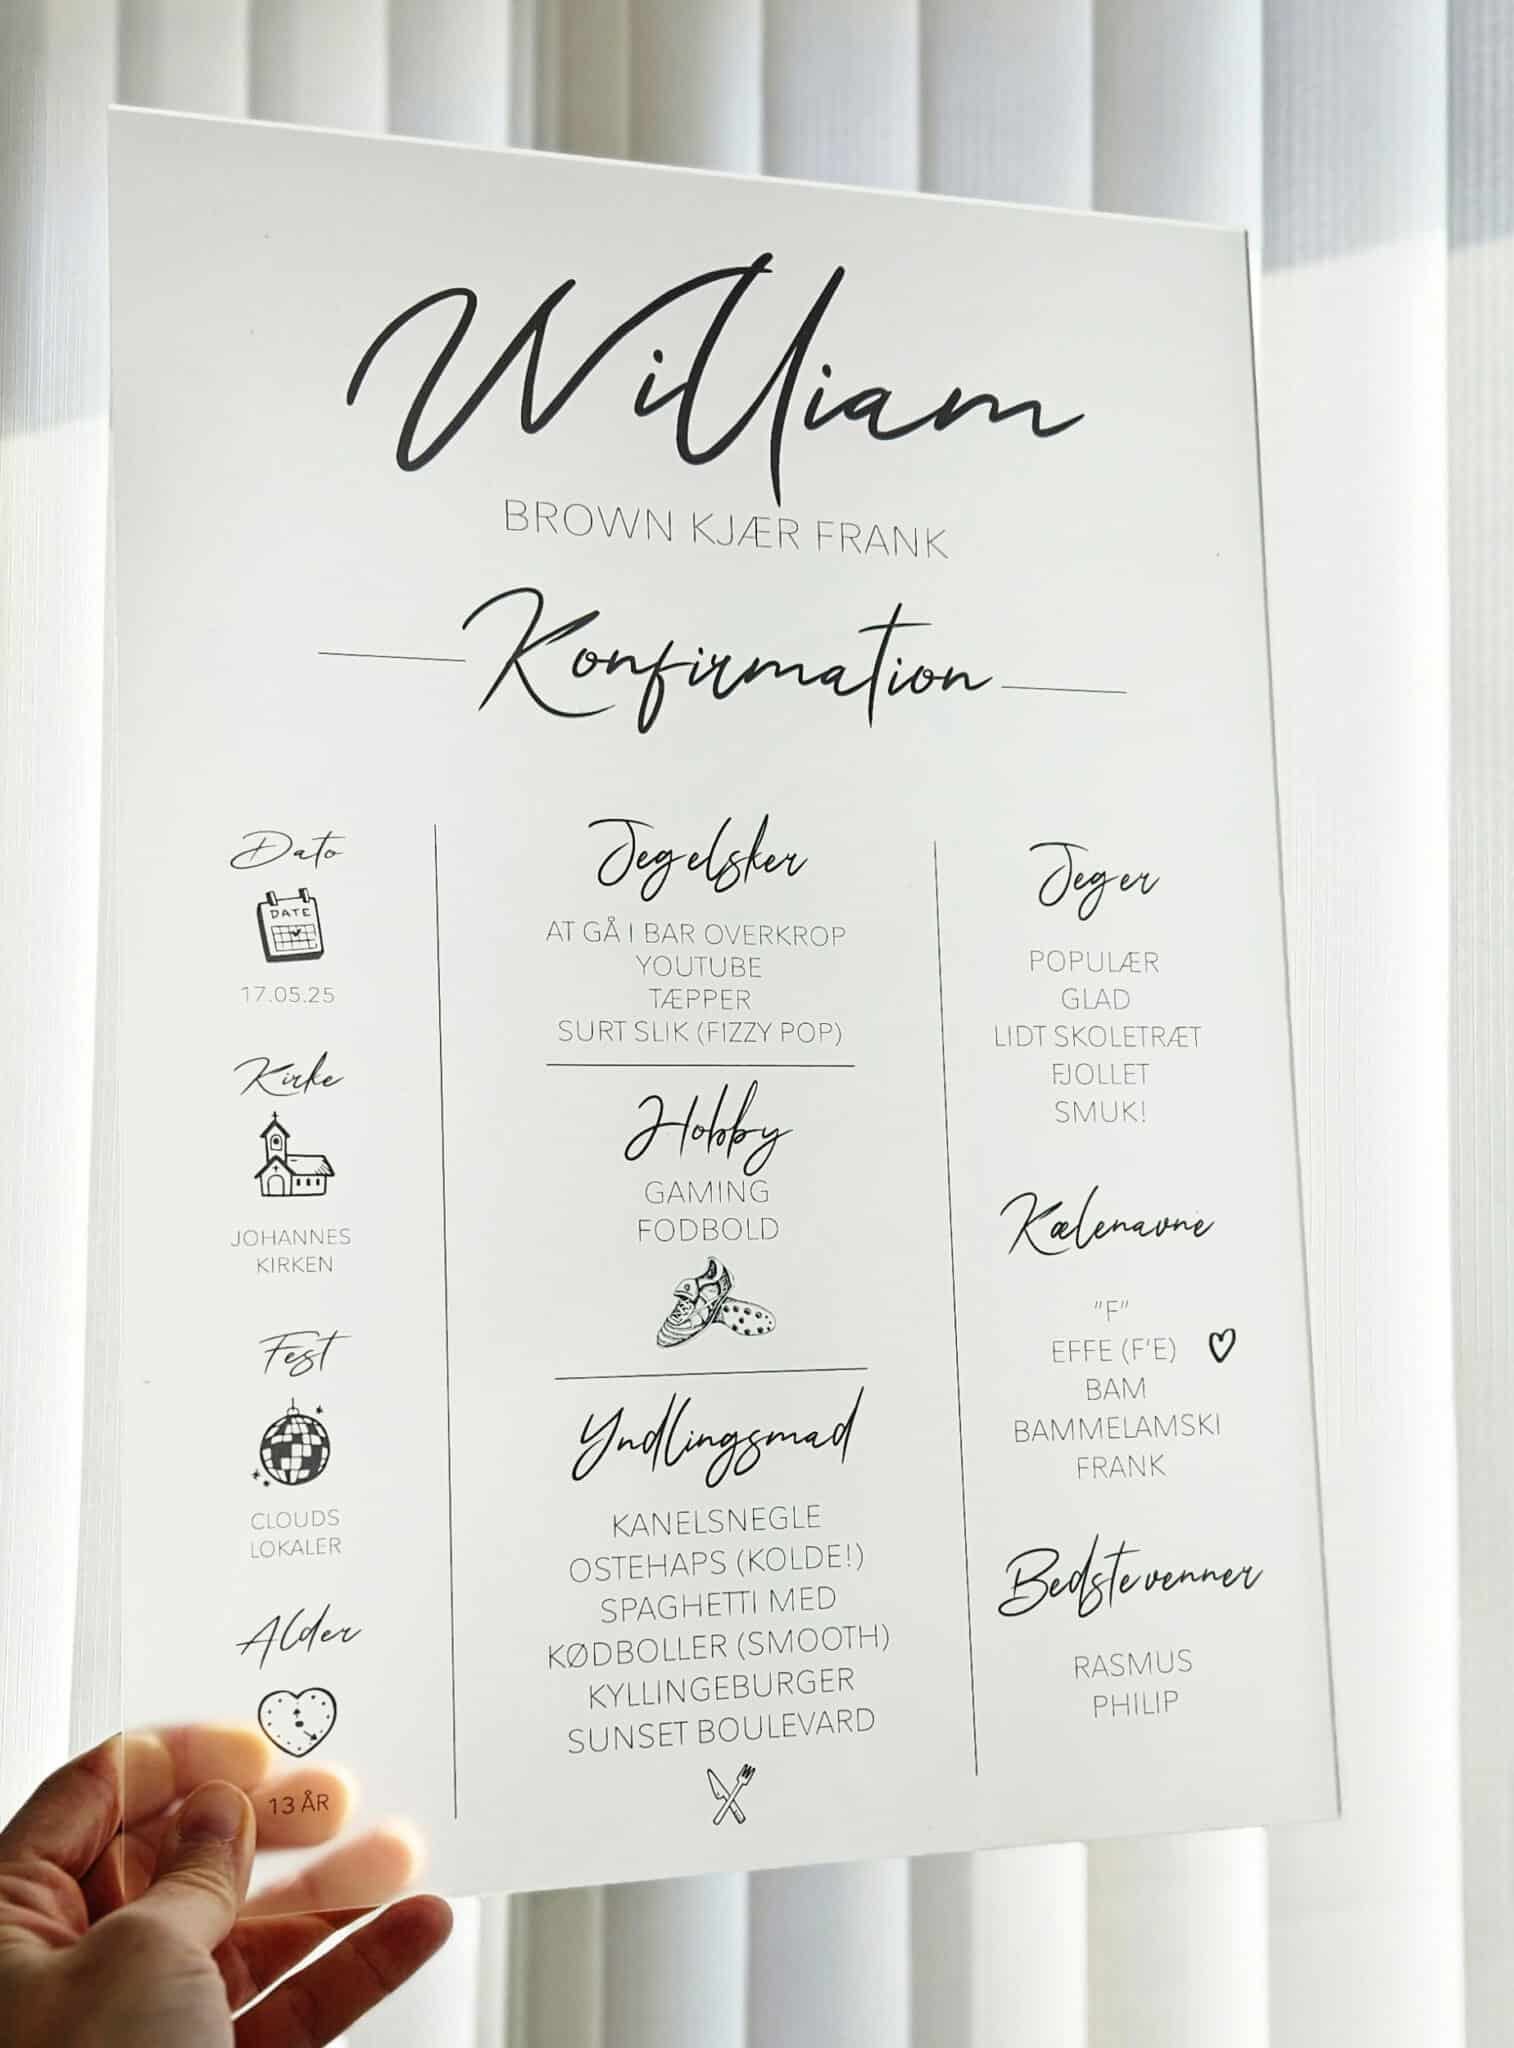 William
BROWN KJÆR FRANK
Konfirmation
Dato
DATE
17.05.25
Kirke
JOHANNES
KIRKEN
Fest
CLOUDS
LOKALER
Alder
13 ÅR
Jeg elsker
AT GÅ I BAR OVERKROP
YOUTUBE
TÆPPER
SURT SLIK (FIZZY POP)
Hobby
GAMING
FODBOLD
Yndlingsmad
KANELSNEGLE
OSTEHAPS (KOLDE!)
SPAGHETTI MED
KØDBOLLER (SMOOTH)
KYLLINGEBURGER
SUNSET BOULEVARD
Jeg er
POPULÆR
GLAD
LIDT SKOLETRÆT
FJOLLET
SMUK!
Kælenavne
"F"
EFFE (F'E)
BAM
BAMMELAMSKI
FRANK
Bedste venner
RASMUS
PHILIP